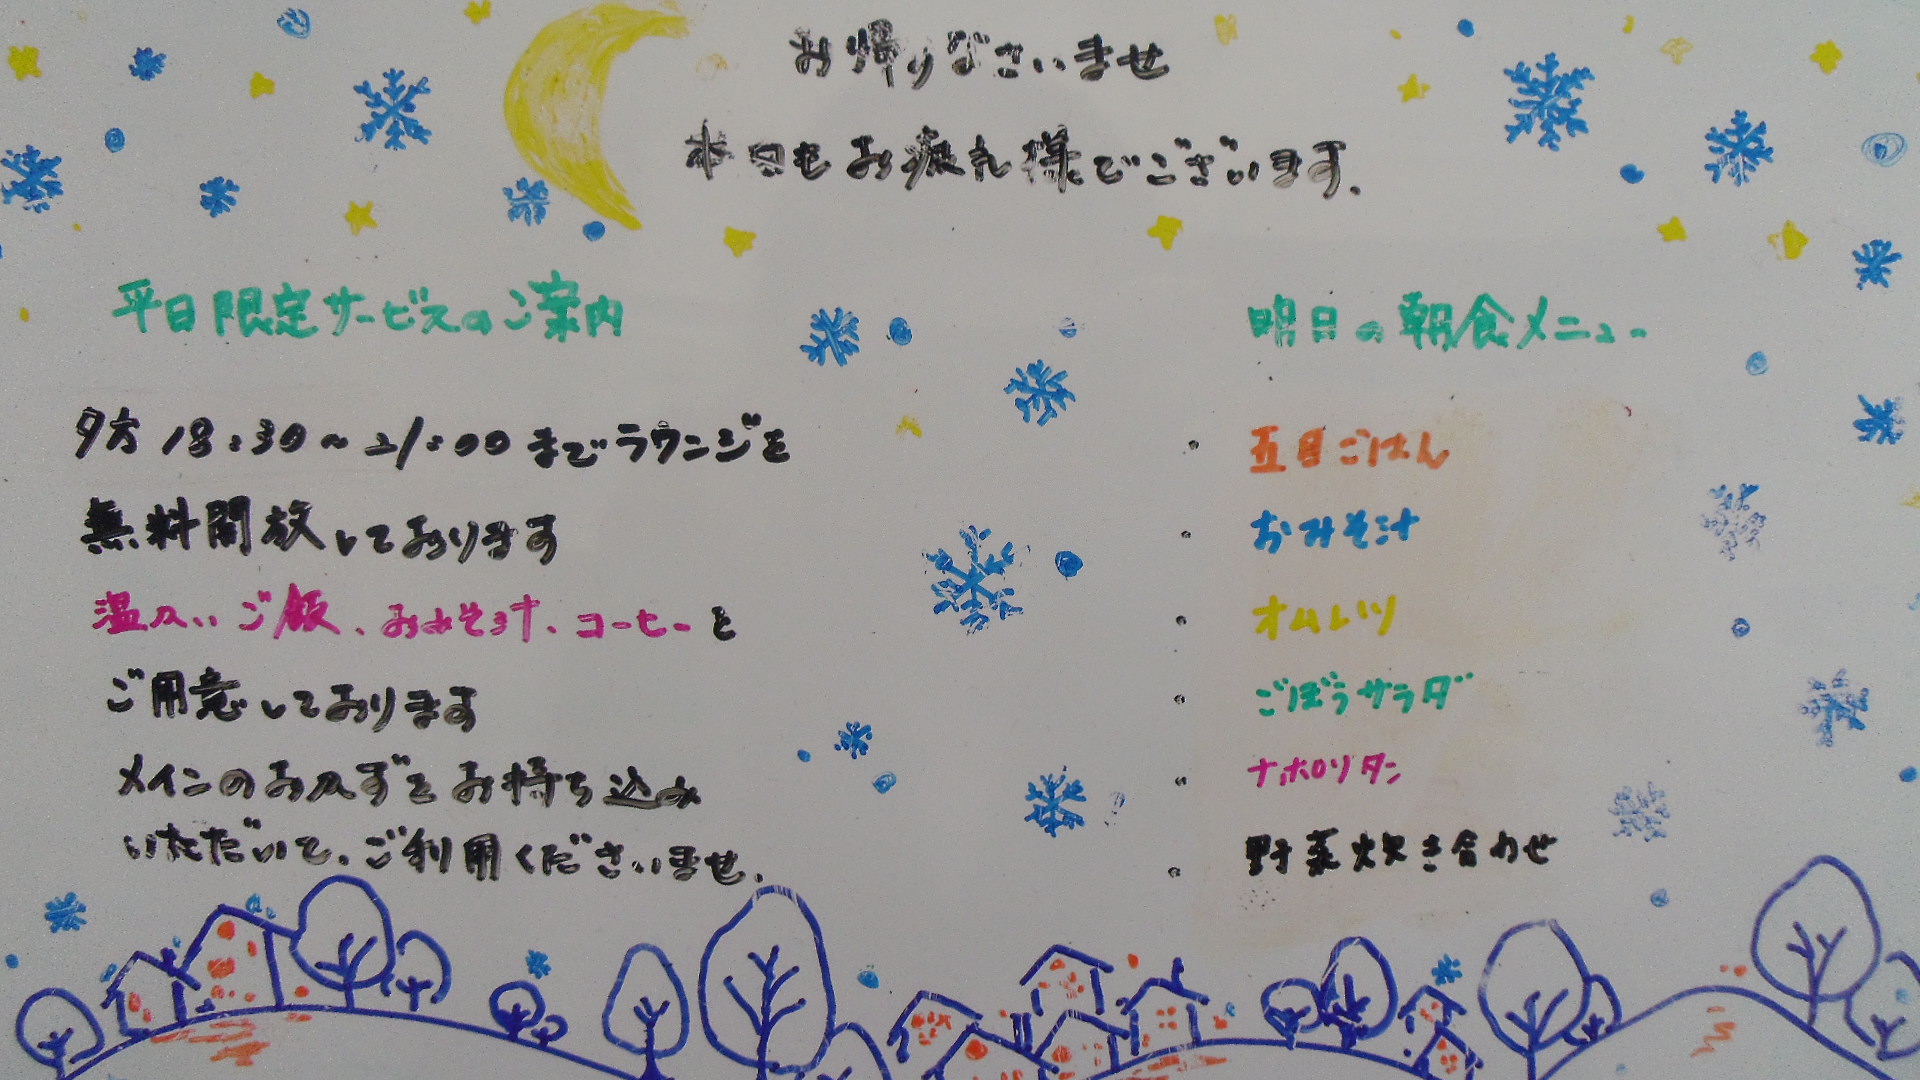 お帰りなさいませ
本日もお疲れ様でございます。
平日限定サービスのご案内
夕方 18:30~21:00 までラウンジを
無料開放しております
温かいご飯、おみそ汁、コーヒーを
ご用意しております
メインのおかずをお持ち込み
いただいて、ご利用くださいませ。
明日の朝食メニュー
・五目ごはん
・おみそ汁
・オムレツ
・ごぼうサラダ
・ナポリタン
・野菜炊き合わせ